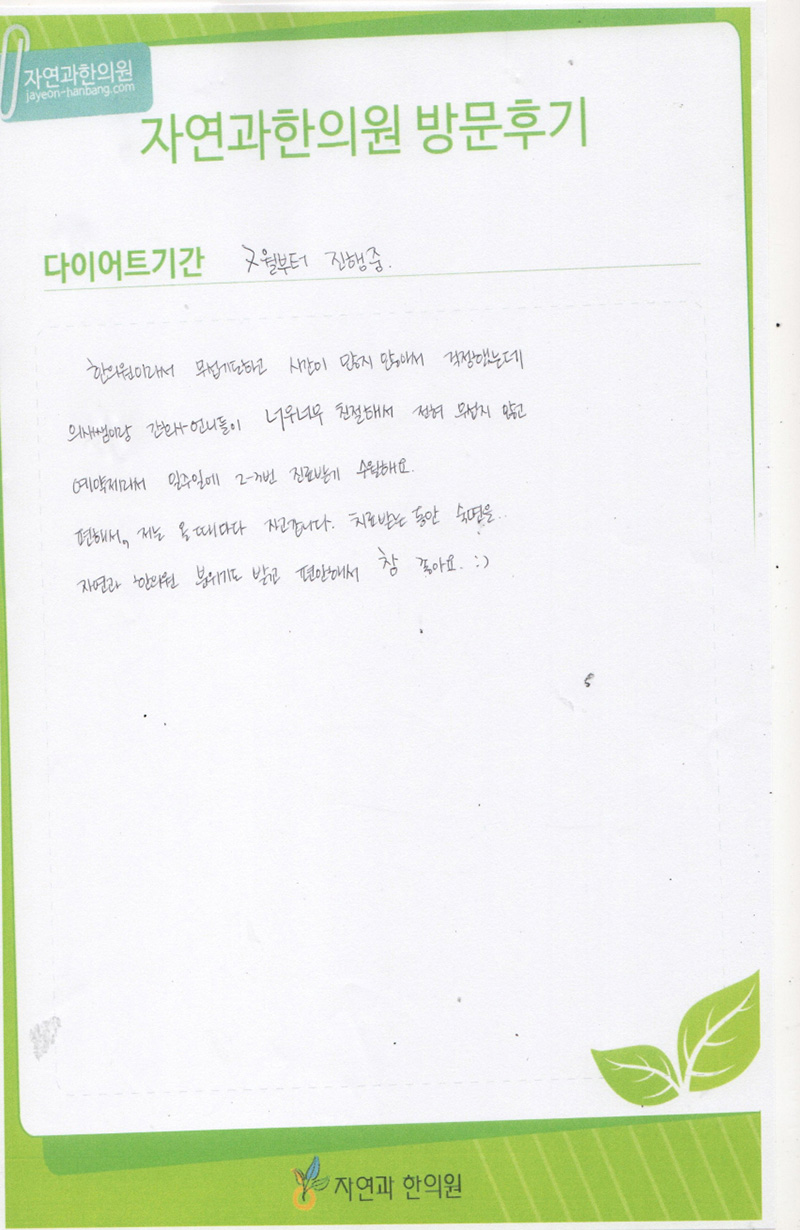 자연과한의원
jayeon-hanbang.com
자연과한의원 방문후기
다이어트기간 7월부터 진행중.
한의원이라서 무섭기도하고 시간이 많지 않아서 걱정했는데
의사쌤이랑 간호사언니들이 너무너무 친절해서 전혀 무섭지 않고
예약제라서 일주일에 2-3번 진료받기 수월해요.
편해서, 저는 올때마다 자고갑니다. 치료받는 동안 숙면을..
자연과 한의원 분위기도 밝고 편안해서 참 좋아요. :)
자연과 한의원